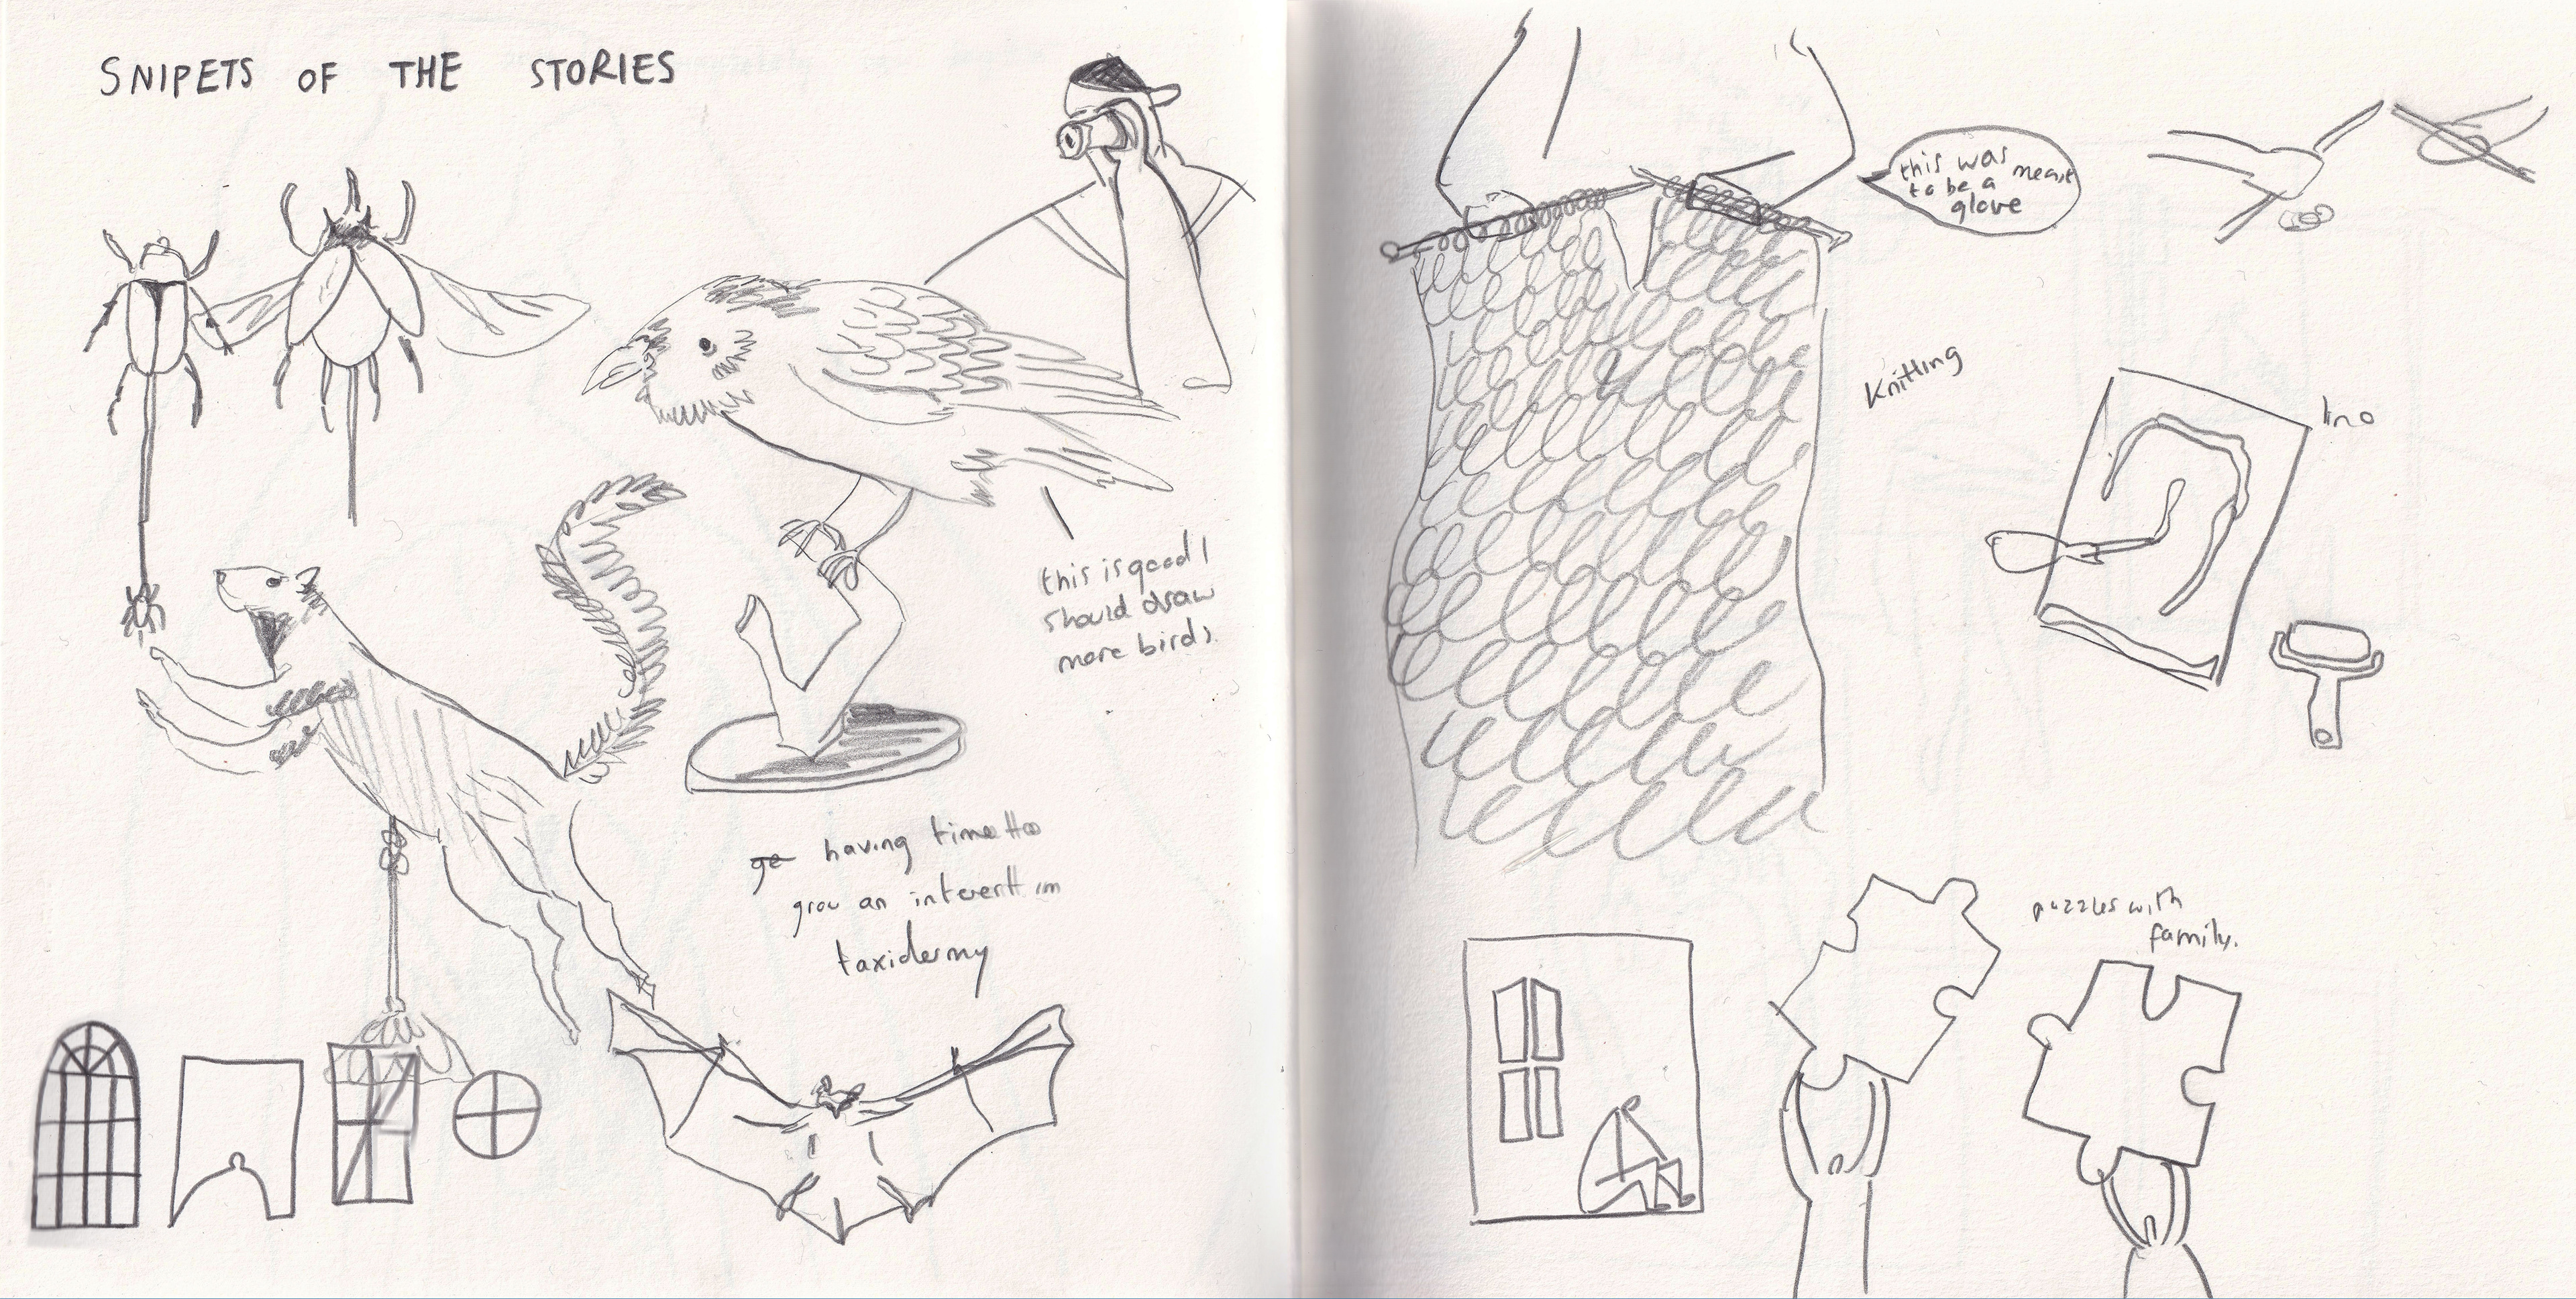 SNIPETS OF THE STORIES
this is good I
should draw
more birds.
ge having time to
grow an interest in
taxidermy
this was meant
to be a
glove
Knitting
lino
puzzles with
family.